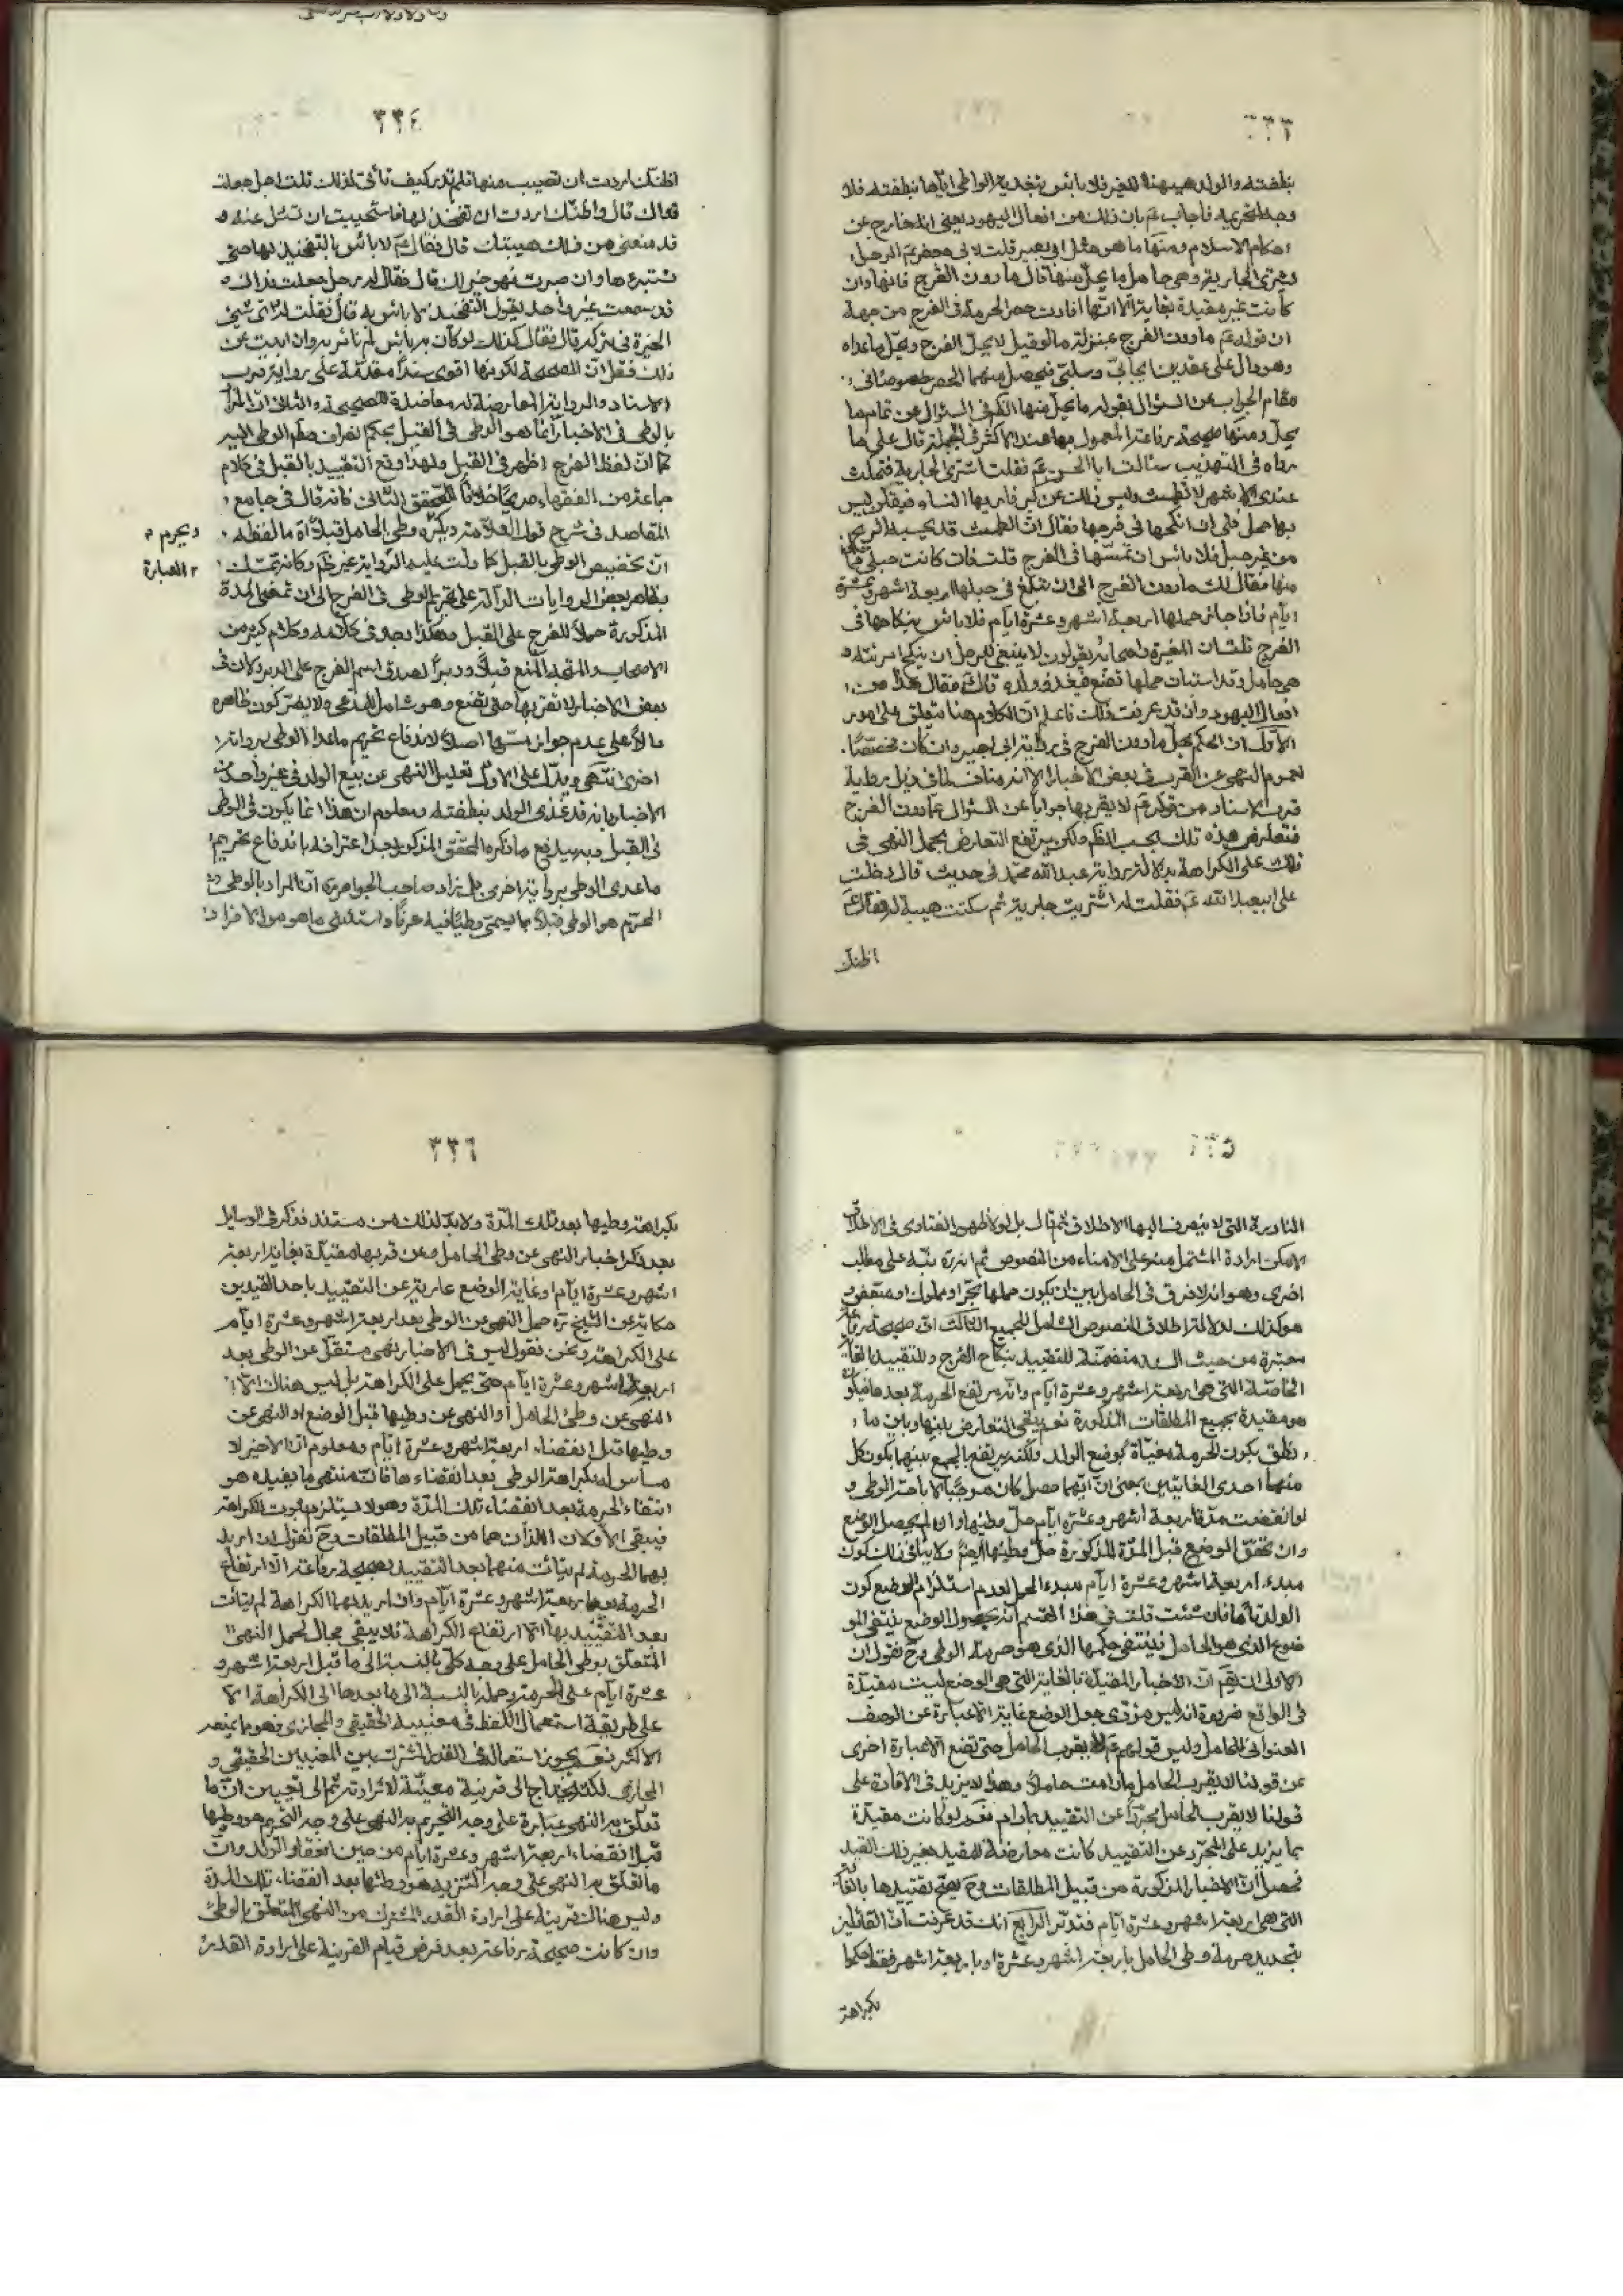 ٣٣٣
بنطفته والولد هيهنا للغير فلا بأس بتغذية الواطى اياها بنطفته فلا
وجه لتحريمه فاجاب عم بان ذلك من افعال اليهود يعنى انه خارج عن
احكام الاسلام ومنها ما هو مثل ابى بصير قلت لابى جعفر عم الرجل
يشترى الجارية وهى حامل ما يحل منها قال ما دون الفرج فانها وان
كانت غير مقيدة بغاية الا انها افادت حصر الحرمة فى الفرج من جهة
ان قوله عم ما دون الفرج بمنزلة ما لو قيل لا يحل الفرج ويحل ما عداه
وهو دال على عقدين ايجابى وسلبى فيحصل منهما الحصر خصوصا فى
مقام الجواب عن السؤال بقوله ما يحل منها الكم فى السؤال عن تمام ما
يحل ومنها صحيحة رفاعة المعمول بها عند الاكثر فى الجملة قال على ما
رواه فى التهذيب سئالت ابا الحسن عم فقلت اشترى الجارية فتمكث
عندى الاشهر لا تطمث وليس ذلك من كبر فاريها النساء فيقلن ليس
بها حمل فلى ان انكحها فى فرجها فقال ان الطمث قد يحبسه الريح
من غير حبل فلا بأس ان تمسها فى الفرج قلت فان كانت حبلى فما لى
منها فقال لك ما دون الفرج الى ان تبلغ فى حبلها اربعة اشهر وعشرة
ايام فاذا جاز حملها اربعة اشهر وعشرة ايام فلا بأس بنكاحها فى
الفرج قلت ان المغيرة واصحابه يقولون لا ينبغى للرجل ان ينكح امرئته و
هى حامل وقد استبان حملها تضع فيغذو ولده قال فقال هذا من
افعال اليهود وان قد عرفت ذلك فاعلم ان الكلام هنا متعلق على امور
الاول ان الحكم بحل ما دون الفرج فى رواية ابى بصير وان كان مخصصا
لعموم النهى عن القرب فى بعض الاخبار الا انه مناف لما فى ذيل رواية
قرب الاسناد من قوله عم لا يقربها جوابا عن السؤال عما دون الفرج
فتعارض هذه تلك بحسب الظم ولكن يرتفع التعارض بحمل النهى فى
تلك على الكراهة بدلالة رواية عبد الله محمد فى حديث قال دخلت
على ابيعبد الله عم فقلت له اشتريت جارية ثم سكتت هيبة له فقال عم
اظنك
٣٣٤
اظنك اردت ان تصيب منها فلم تدر كيف تأتى لذلك قلت اجل جعلت
فداك قال واظنك اردت ان تفخذ لها فاستحييت ان تسئل عنه و
قد منعنى من ذلك هيبتك قال فقال عم لا بأس بالتفخيذ لها حتى
تستبرءها وان صبرت فهو خير لك قال فقال له رجل جعلت فداك
قد سمعت غير واحد يقول التفخيذ لا بأس به قال فقلت له اى شئ
الخيرة فى تركه قال فقال كذلك لو كان به بأس لم نأمر به وان ابيت عن
ذلك فقل ان الصحيحة لكونها اقوى سندا مقدمة على رواية قرب
الاسناد والرواية المعارضة له معاضدة للصحيحة والثانى ان المراد
بالوطى فى الاخبار انما هو الوطى فى القبل بحكم انصراف مطلق الوطى اليه
كما ان لفظ الفرج اظهر فى القبل ولهذا وقع التقييد بالقبل فى كلام
جماعة من الفقهاء صريحا خلافا للمحقق الثانى فانه قال فى جامع
المقاصد فى شرح قول العلامة ويكره وطى الحامل قبلا اه ما لفظه
ان تخصيص الوطى بالقبل كما دلت عليه الرواية غير ظم وكانه تمسك
بظاهر بعض الروايات الدالة على تحريم الوطى فى الفرج الى ان تمضى المدة
المذكورة حملا للفرج على القبل هكذا يوجد فى كلامه وكلام كثير من
الاصحاب والمتجه المنع قبلا ودبرا لصدق اسم الفرج على الدبر ولان فى
بعض الاخبار لا تقربها حتى تضع وهو شامل للمدعى ولا يضر كون ظاهره
دالا على عدم جواز مسها اصلا لاندفاع تحريم ماعدا الوطى برواية
اخرى انتهى ويدل على الاول تعليل النهى عن بيع الولد فى غير واحد من
الاخبار بانه قد غذى الولد بنطفته ومعلوم ان هذا انما يكون فى الوطى
فى القبل وبه يندفع ما ذكره المحقق المذكور بعد اعترافه باندفاع تحريم
ماعدى الوطى برواية اخرى بل زاد صاحب الجواهر ره ان المراد بالوطى
المحرم هو الوطى قبلا بما يسمى وطيا فيه عرفا واستثنى ما هو من الافراد
ويحرم م
٢ العبارة
٣٣٥
النادرة التى لا ينصرف اليها الاطلاق ثم قال بل لولا ظهور الفتاوى فى الاطلاق
لامكن ارادة المشتمل منه على الامناء من النصوص ثم انه ره نبه على مطلب
اخرى وهو انه لا فرق فى الحامل بين ان يكون حملها حرا او مملوكا او متفقا و
هو كذلك لدلالة اطلاق النصوص الشامل للجميع الثالث ان صحيحة رفاعة
معتبرة من حيث السند متضمنة للتقييد بنكاح الفرج وللتقييد بالغاية
الخاصة التى هى اربعة اشهر وعشرة ايام وانه يرتفع الحرمة بعدها فيكون
هو مقيدة بجميع المطلقات المذكورة نعم يبقى التعارض بينها وبين ما
نطق بكون الحرمة مغياة بوضع الولد ولكنه يرتفع بالجمع بينهما بكون كل
منهما احدى الغايتين بمعنى ان ايهما حصل كان موجبا لاباحة الوطى و
لو انقضت مدة اربعة اشهر وعشرة ايام حل وطيها وان لم يحصل الوضع
وان تحقق الوضع قبل المدة المذكورة حل وطيها ايضا ولا ينافى ذلك كون
مبدء اربعة اشهر وعشرة ايام مبدء الحمل لعدم استلزام الوضع كون
الولد تاما فان شئت قلت فى هذا القسم انه بحصول الوضع ينتفى المو
ضوع الذى هو الحامل فينتفى حكمها الذى هو حرمة الوطى وح نقول ان
الاولى ان يقم ان الاخبار المقيدة بالغاية التى هى الوضع ليست مقيدة
فى الواقع ضرورة انه ليس مؤدى جعل الوضع غاية الا عبارة عن الوصف
العنوانى للحامل وليس قولهم عم لا يقرب الحامل حتى تضع الا عبارة اخرى
عن قولنا لا يقرب الحامل ما دامت حاملا وهذا لا يزيد فى الافادة على
قولنا لا يقرب الحامل مجردا عن التقييد بمادام نعم لو كانت مقيدة
بما يزيد على المجرد عن التقييد كانت معارضة للمقيد بغير ذلك القيد
فحصل ان الاخبار المذكورة من قبيل المطلقات وح يصح تقييدها بالغاية
التى هى اربعة اشهر وعشرة ايام فتدبر الرابع انك قد عرفت ان القائلين
بتحديد حرمة وطى الحامل باربعة اشهر وعشرة او باربعة اشهر فقط حكموا
بكراهة
٣٣٦
بكراهة وطيها بعد تلك المدة ولا بد لذلك من مستند فذكر فى الوسايل
بعد ذكر اخبار النهى عن وطى الحامل وعن قربها مقيدة بغاية اربعة
اشهر وعشرة ايام او غاية الوضع عارية عن التقييد باحد القيدين
حكاية عن الشيخ ره حمل النهى عن الوطى بعد اربعة اشهر وعشرة ايام
على الكراهة ونحن نقول ليس فى الاخبار نهى مستقل عن الوطى بعد
اربعة اشهر وعشرة ايام حتى يحمل على الكراهة بل ليس هناك الا
النهى عن وطى الحامل او النهى عن وطيها قبل الوضع او النهى عن
وطيها قبل انقضاء اربعة اشهر وعشرة ايام ومعلوم ان الاخير لا
مساس له بكراهة الوطى بعد انقضاءها فان منتهى ما يفيده هو
انتفاء الحرمة بعد انقضاء تلك المدة وهو لا يستلزم ثبوت الكراهة
فيبقى الاولان اللذان هما من قبيل المطلقات وح نقول ان اريد
بهما الحرمة لم يتأت منهما بعد التقييد بصحيحة رفاعة الا ارتفاع
الحرمة بعد اربعة اشهر وعشرة ايام وان اريد بهما الكراهة لم يتأت
بعد التقييد بها الا ارتفاع الكراهة فلا يبقى مجال لحمل النهى
المتعلق بوطى الحامل على وجه كلى بالنسبة الى ما قبل اربعة اشهر و
عشرة ايام على الحرمة وحمله بالنسبة الى ما بعدها الى الكراهة الا
على طريقة استعمال اللفظ فى معنييه الحقيقى والمجازى وهو ما يمنعه
الاكثر نعم يجوز استعماله فى القدر المشترك بين المعنيين الحقيقى و
المجازى لكنه يحتاج الى قرينة معينة لارادته ثم الى تعيين ان ما
تعلق به النهى عبارة على وجه التحريم به النهى على وجه التحريم هو وطيها
قبل انقضاء اربعة اشهر وعشرة ايام من حين انعقاد الولد وان
ما تعلق به النهى على وجه التنزيه هو وطئها بعد انقضاء تلك المدة
وليس هناك قرينة على ارادة القدر المشترك من النهى المتعلق بالوطى
وان كانت صحيحة رفاعة بعد فرض قيام القرينة على ارادة القدر